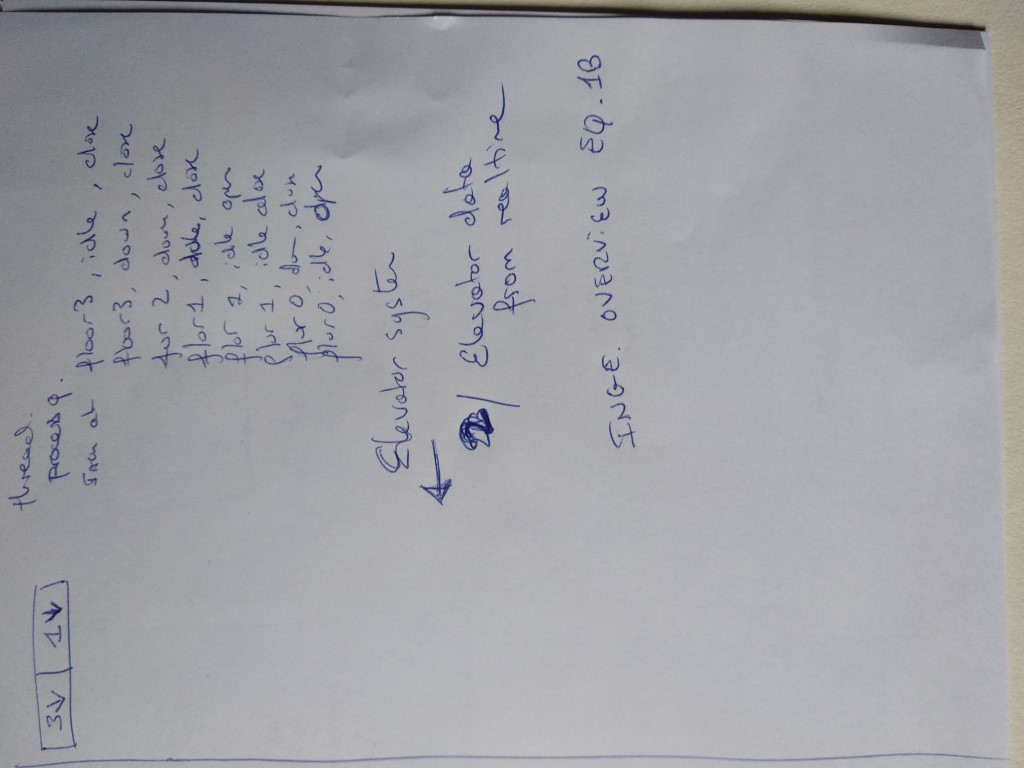 thread.
3↓ 1↓
process q.
at floor3, idle, close
floor3, down, close
2, down, close
flor1, idle, close
flor 1, idle open
flor 1, idle close
flor 0, close
flor 0, idle, open
Elevator system
←
2/ Elevator data
from realtime
INGE. OVERVIEW EQ. 1B